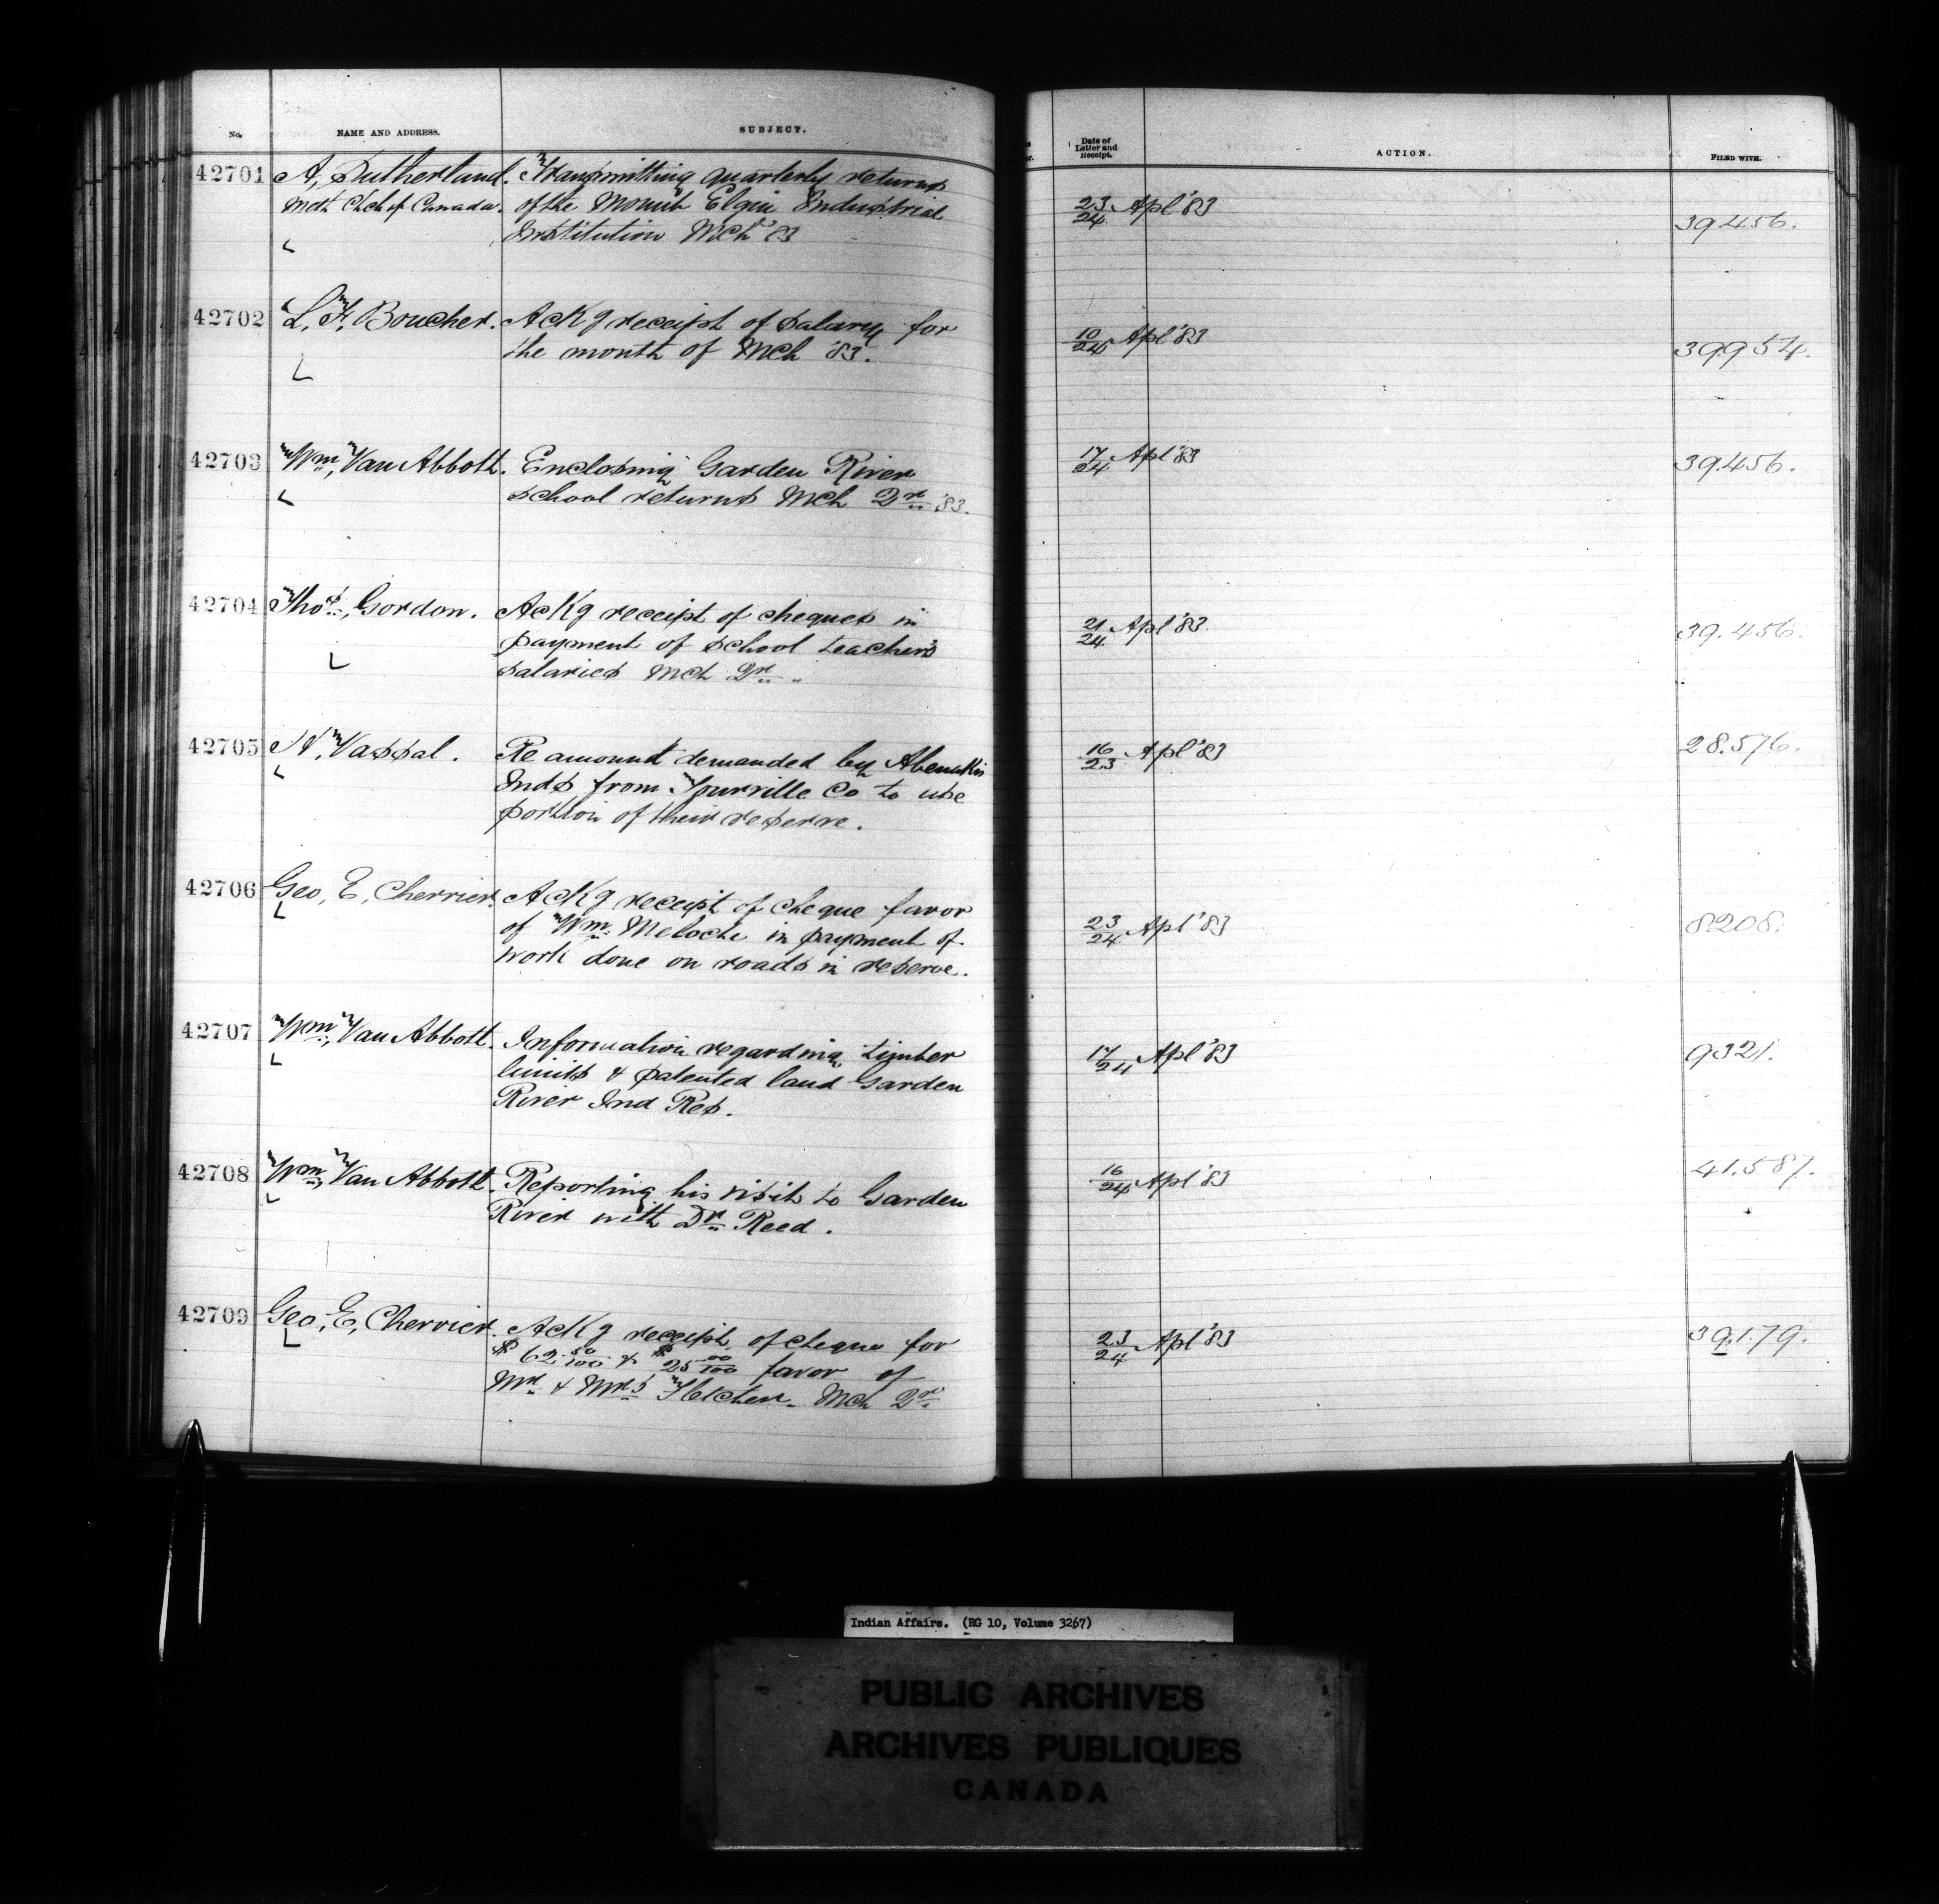 No. NAME AND ADDRESS. SUBJECT. Date of Letter and Receipt. ACTION. FILED WITH.
42701 A, Sutherland. Transmitting quarterly returns
Meth Chch of Canada. of the Mount Elgin Industrial 23/24 Apl '83 39456.
Institution Mch '83
42702 L, F, Boucher. Ackg receipt of salary for
the month of Mch '83. 10/24 Apl '83 39954.
42703 Wm, Van Abbott. Enclosing Garden River 17/24 Apl '83 39.456.
school returns Mch Qr '83.
42704 Thos, Gordon. Ackg receipt of cheques in
payment of school teacher's 21/24 Apl '83. 39.456.
salaries Mch Qr "
42705 H, Vassal. Re amount demanded by Abenakis 16/23 Apl '83 28.576.
Inds from Spurville Co to use
portion of their reserve.
42706 Geo, E, Cherrier. Ackg receipt of cheque favor
of Wm Meloche in payment of 23/24 Apl '83 8208.
work done on roads in reserve.
42707 Wm, Van Abbott. Information regarding timber 17/24 Apl '83 9321.
limits & patented land Garden
River Ind Res.
42708 Wm, Van Abbott. Reporting his visit to Garden 16/24 Apl '83 41.587.
River with Dr Reed.
42709 Geo, E, Cherrier. Ackg receipt of cheque for 23/24 Apl '83 39.179.
$62 50/100 & $25 00/100 favor of
Mr & Mrs Fletcher. Mch Qr
Indian Affairs. (RG 10, Volume 3267)
PUBLIC ARCHIVES
ARCHIVES PUBLIQUES
CANADA